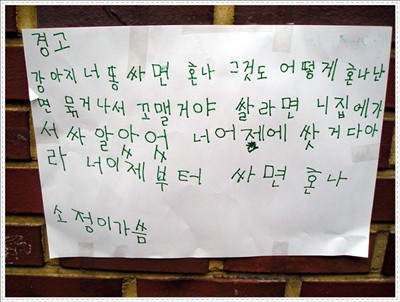 경고
강아지 너 똥 싸면 혼나 그것도 어떻게 혼나난
면 묶거나서 꼬맬거야 쌀라면 니집에가
서 싸 알아어 너어제에 쌋 거다아
라 너이제부터 싸면 혼나
소정이가씀